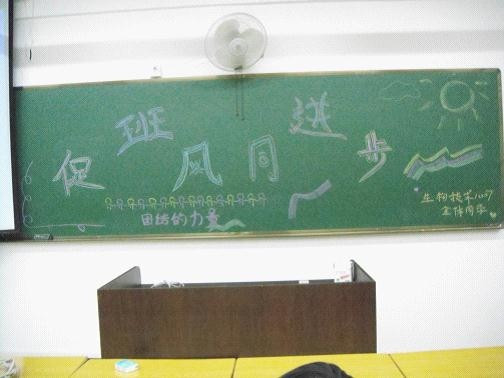 促班风同进步
团结的力量
生物技术
全体同学